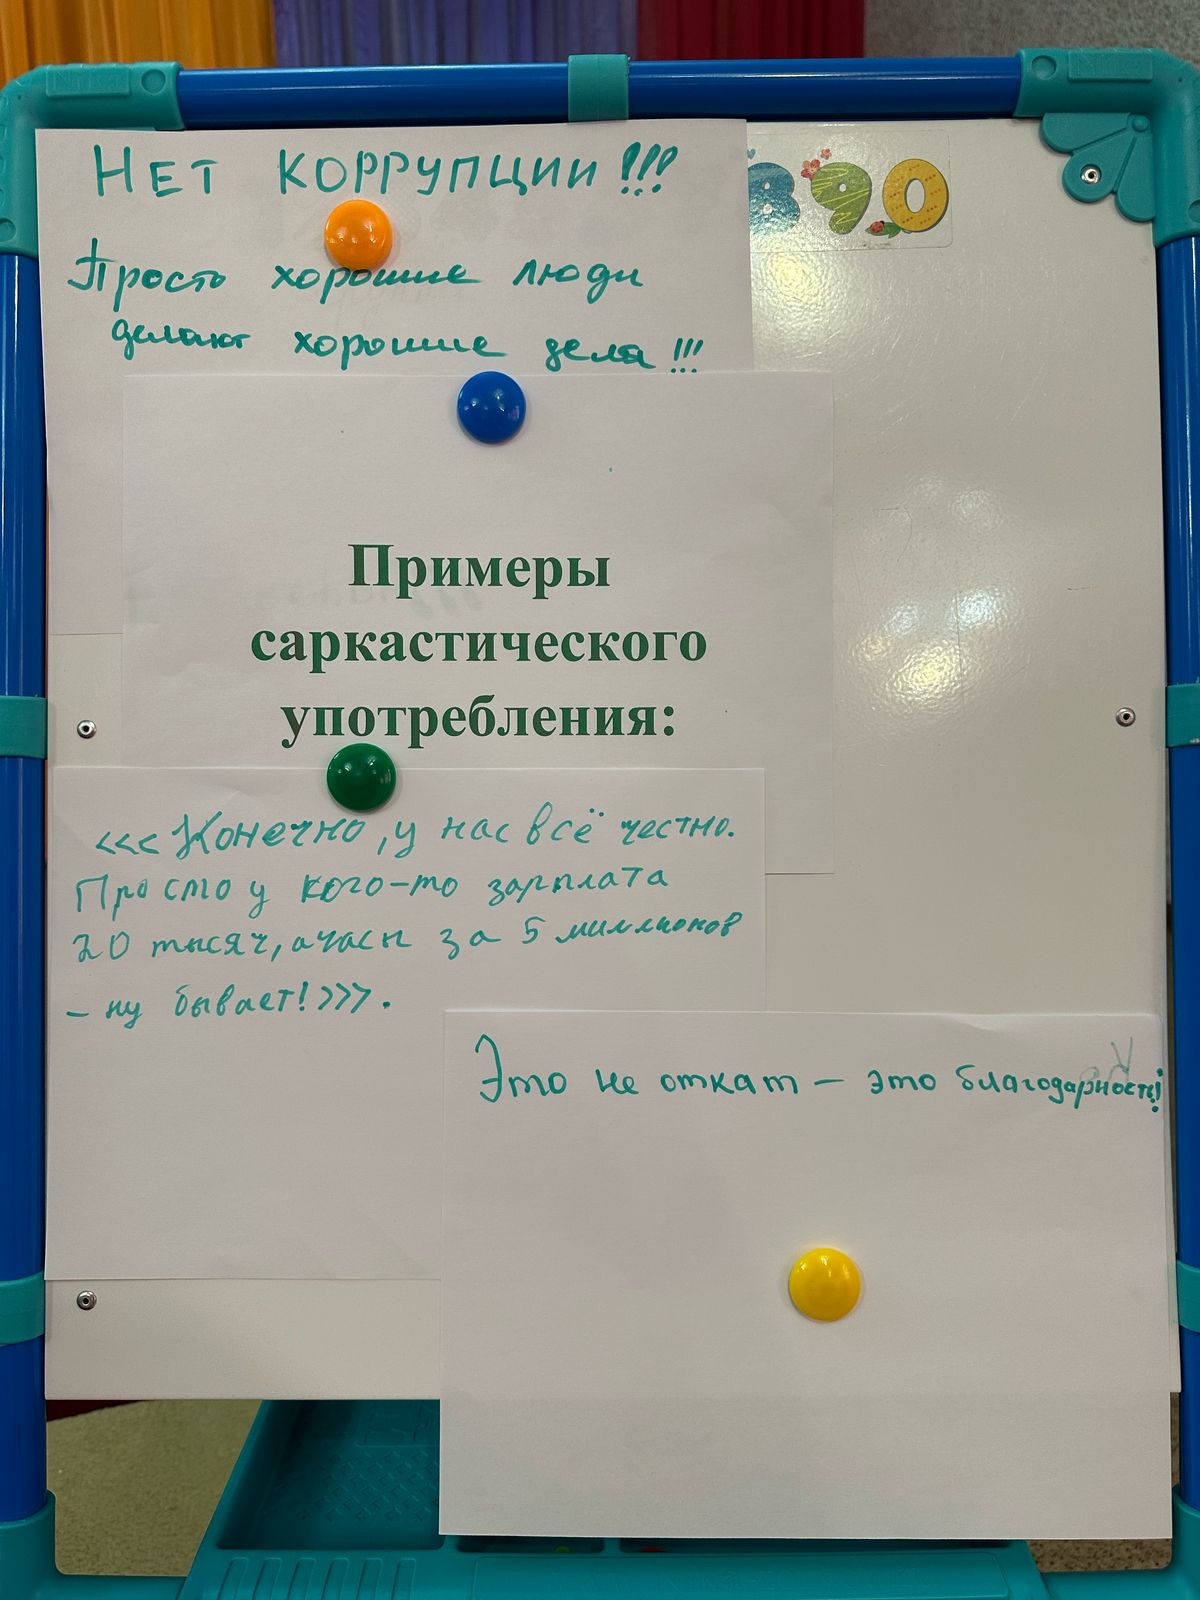 НЕТ КОРРУПЦИИ!!!
890
Просто хорошие люди
делают хорошие дела!!!
Примеры
саркастического
употребления:
<<< Конечно, у нас всё честно.
Просто у кого-то зарплата
20 тысяч, а часы за 5 миллионов
- ну бывает! >>>.
Это не откат – это благодарность!